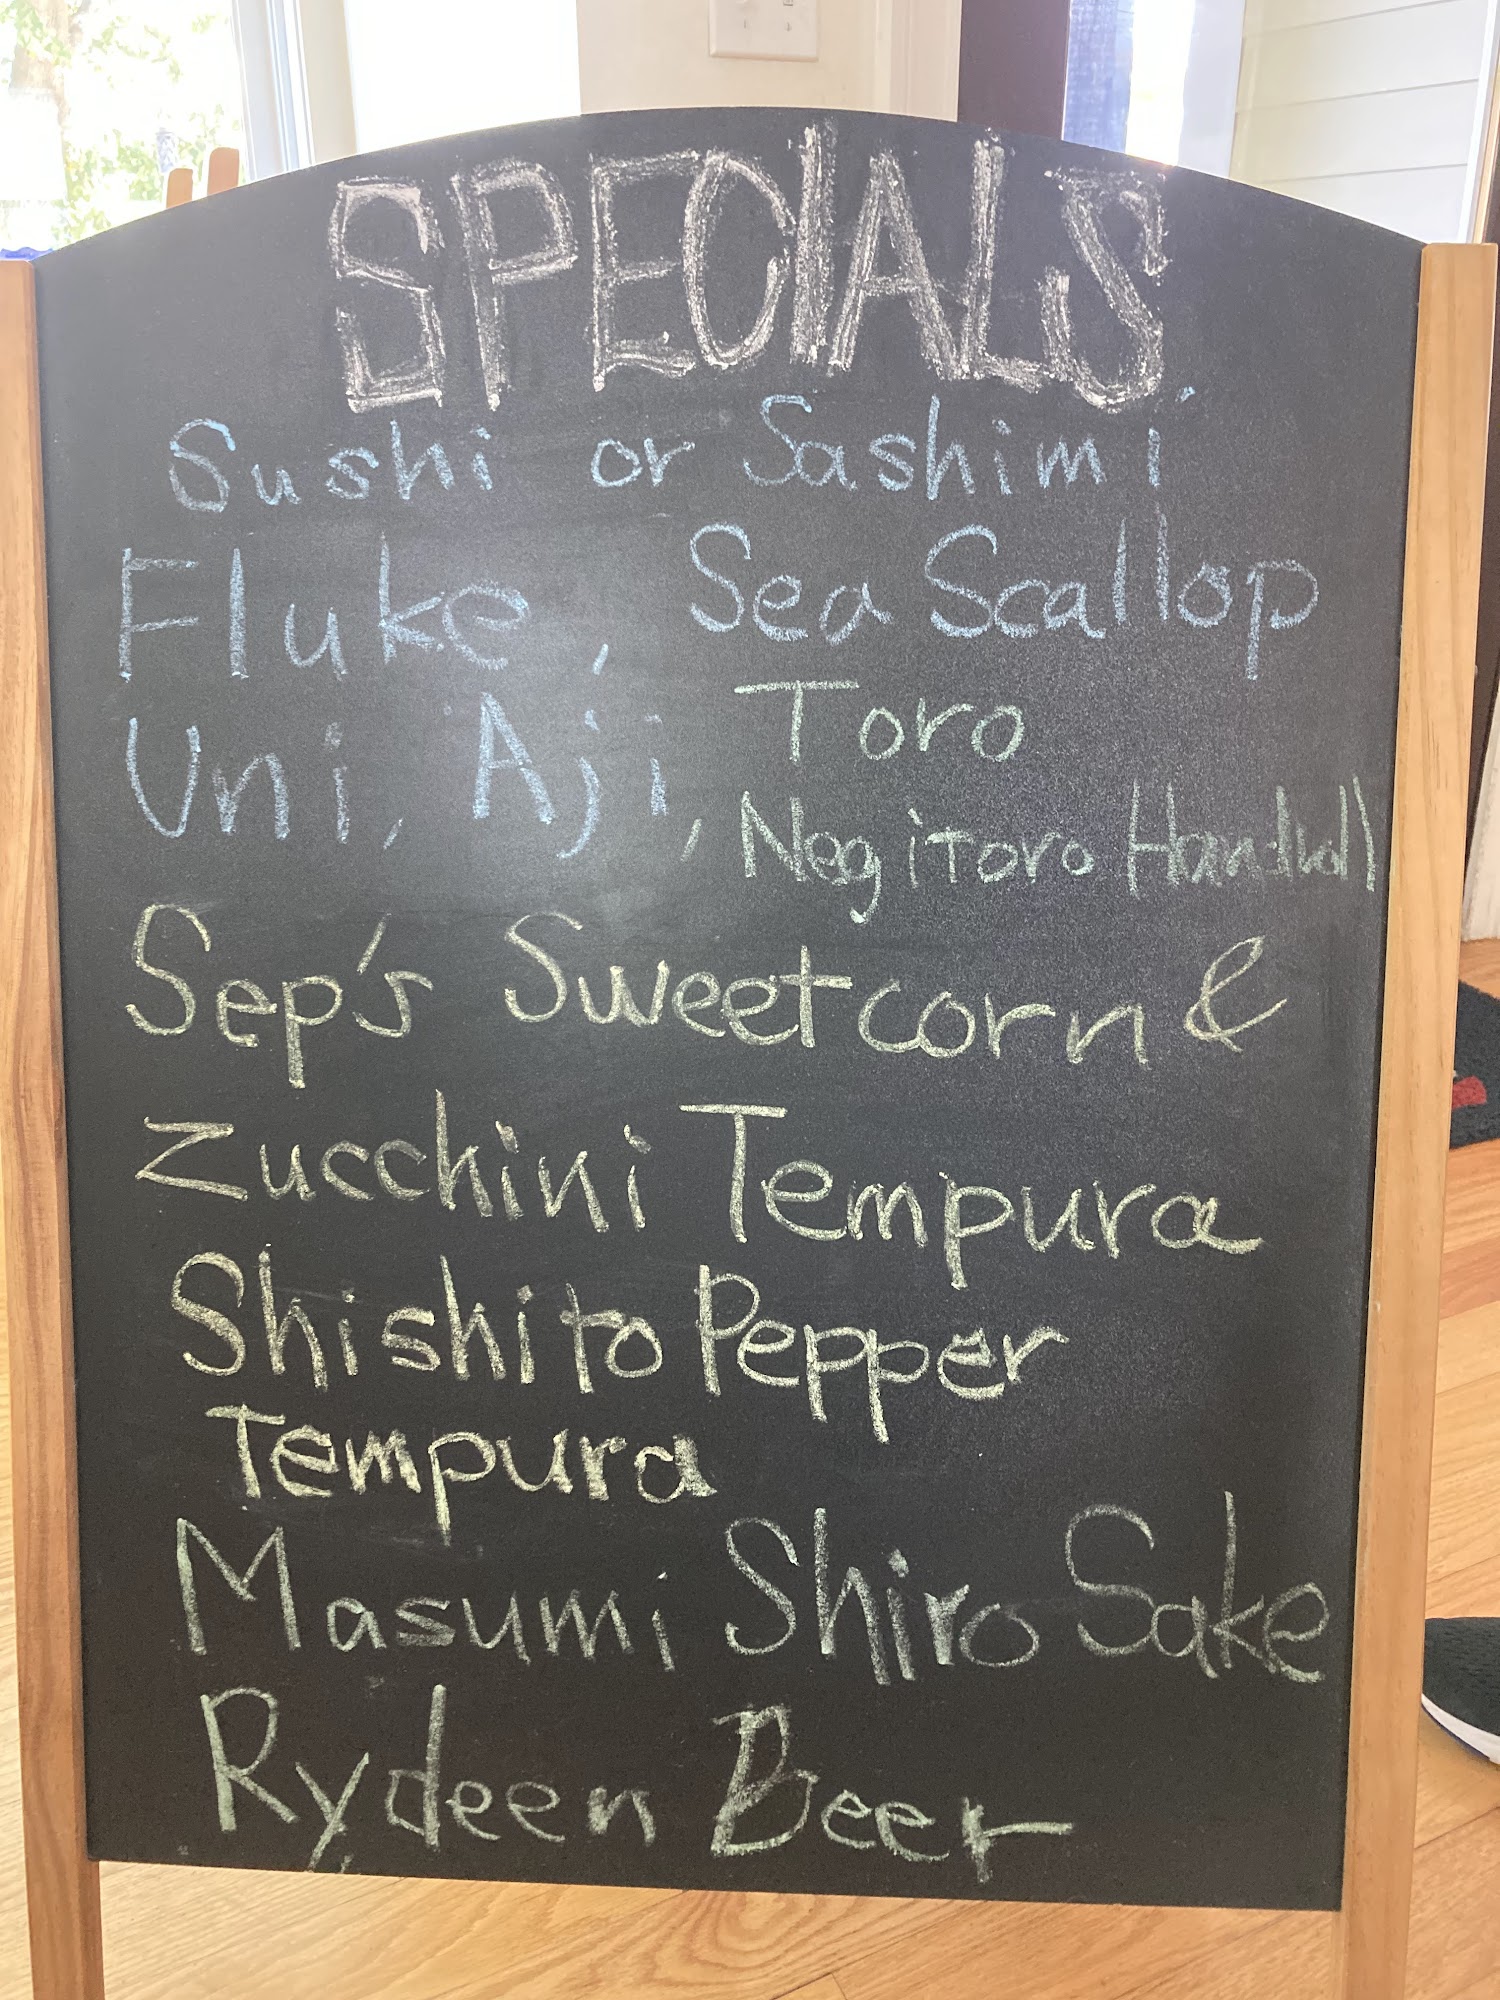 SPECIALS
Sushi or Sashimi
Fluke, Sea Scallop
Uni, Aji, Toro
Negitoro Handroll
Sep's Sweetcorn &
Zucchini Tempura
Shishito Pepper
Tempura
Masumi Shiro Sake
Rydeen Beer